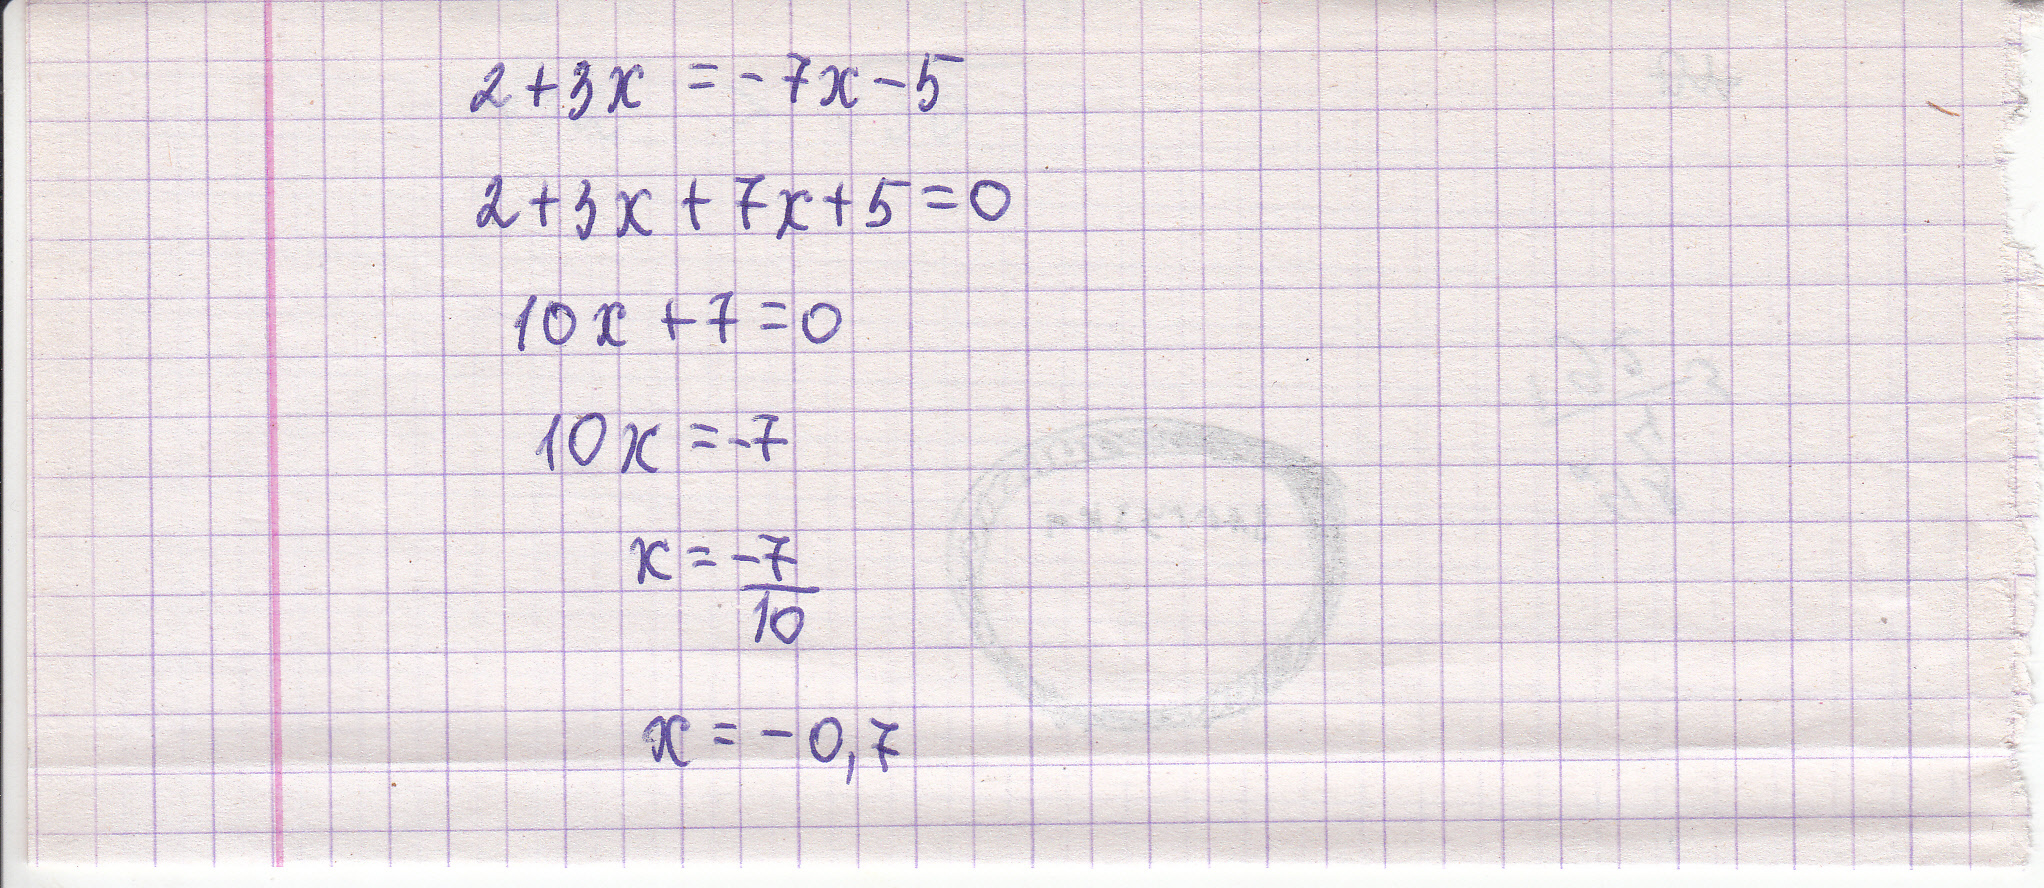 2+3x = -7x-5
2+3x+7x+5=0
10x+7=0
10x=-7
x=-7/10
x=-0,7